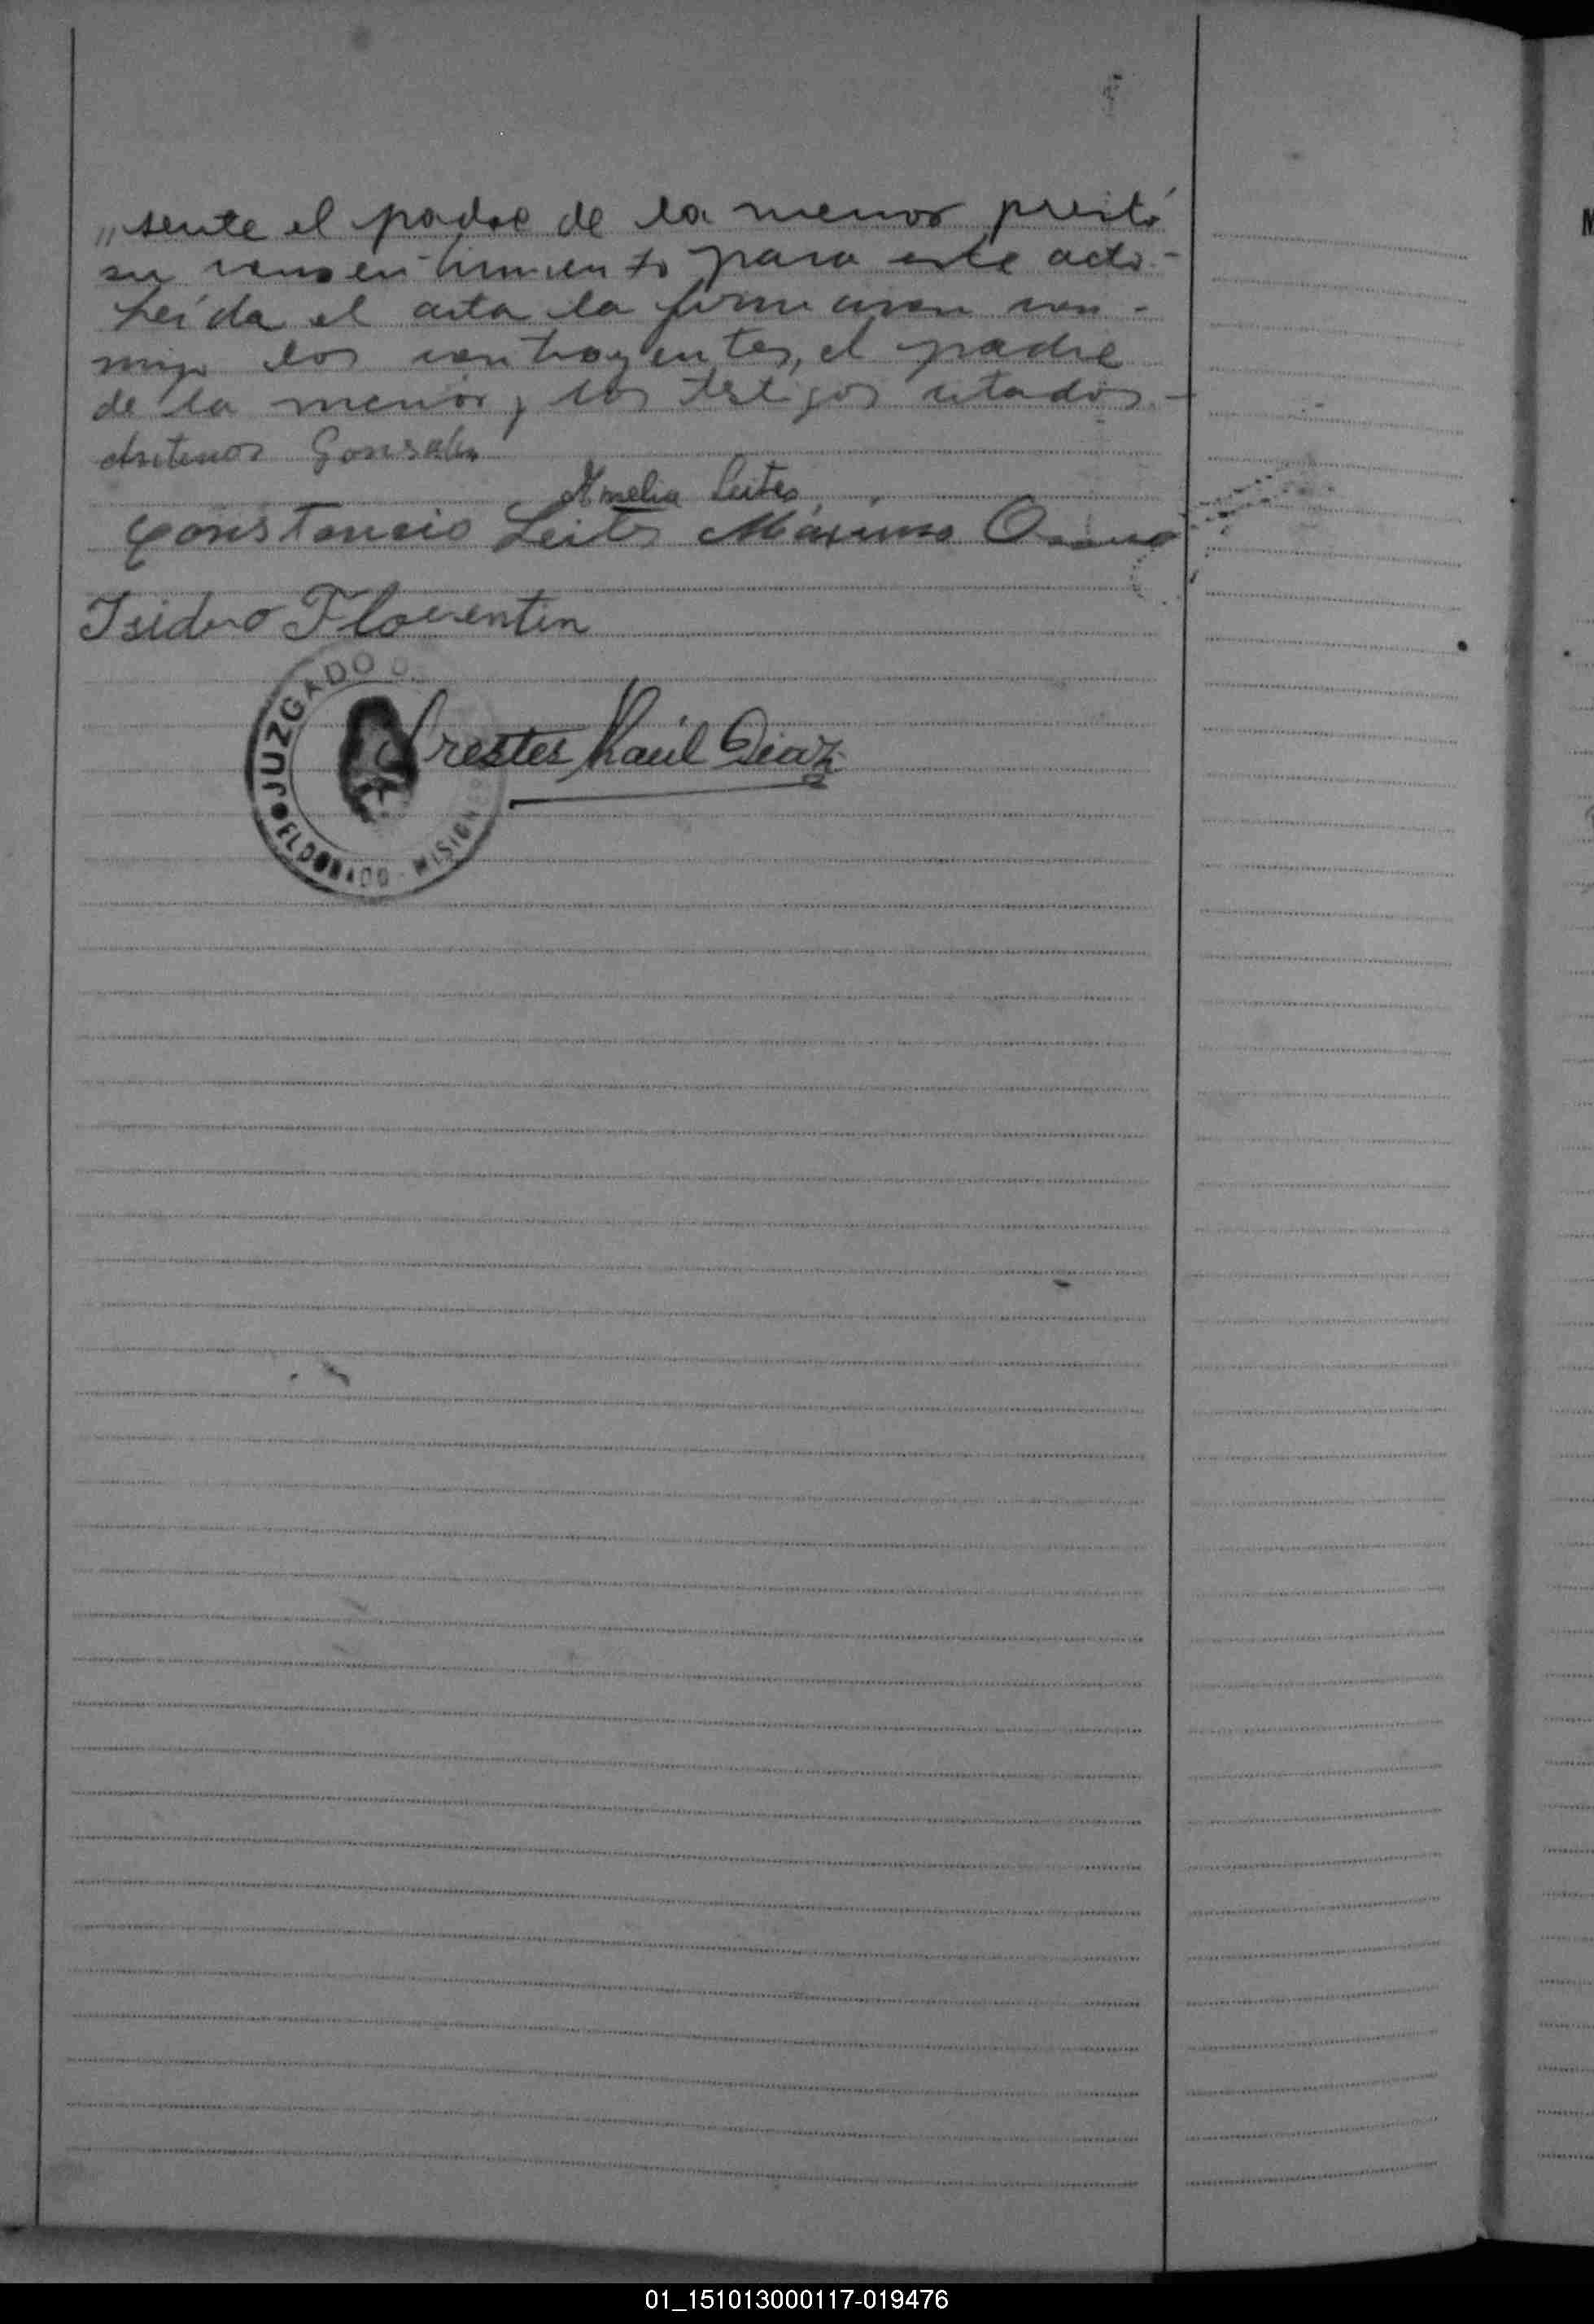 „sente el padre de la menor prestó
su consentimiento para este acto.-
Leída el acta la firmaron con-
migo los contrayentes, el padre
de la menor y los testigos citados.-
Antenor Gonsales
Amelia Leites
Constancio Leites Máximo
Isidro Florentin
JUZGADO
Orestes Raúl Diaz
ELDORADO - MISIONES
M
01_151013000117-019476